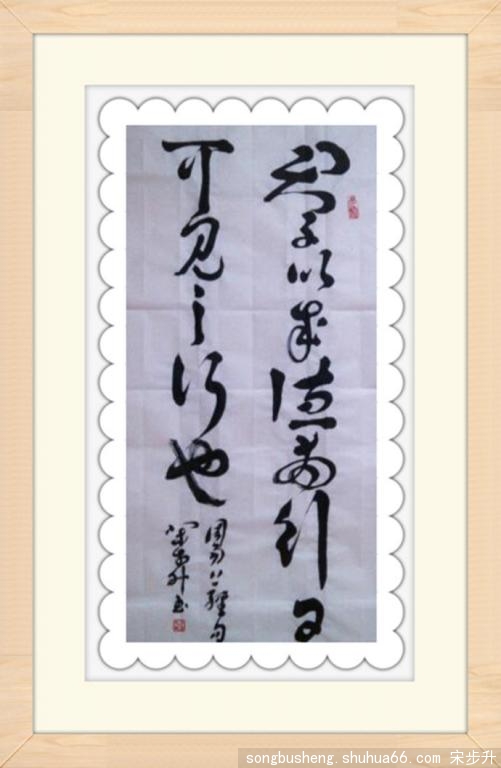 君子以成德為行日
可見之行也
周易經句
宋步升書
songbusheng.shuhua66.com 宋步升